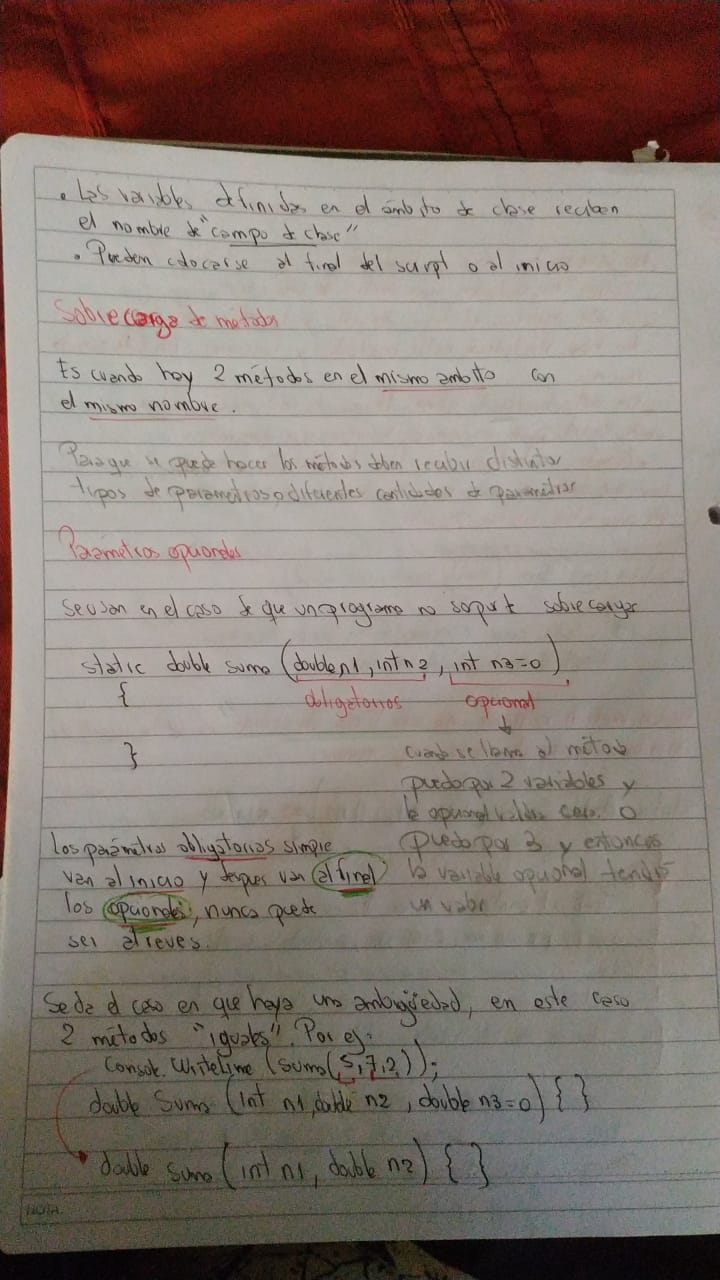 • Las variables definidas en el ámbito de clase reciben
el nombre de "campo de clase"
• Pueden colocarse al final del script o al inicio
Sobrecarga de metodos
Es cuando hay 2 métodos en el mismo ambito con
el mismo nombre.
Para que se puede hacer los métodos deben recibir distintos
tipos de parametros o diferentes cantidades de parametros
Parámetros opcionales
Se usan en el caso de que un programa no soporte sobrecargas
static double suma (double n1, int n2, int n3=0)
{
obligatorios opcional
}
cuando se llama al método
puedo por 2 variables y
la opcional cero. 0
puedo por 3 y entonces
la variable opcional tendrá
un valor
Los parámetros obligatorios siempre
van al inicio y despues van al final
los opcionales, nunca puede
ser al reves.
Se da el caso en que haya una ambigüedad, en este caso
2 métodos "iguales". Por ej:
Console.WriteLine (Suma(5,7,2));
double Suma (int n1, double n2, double n3=0) { }
double suma (int n1, double n2) { }